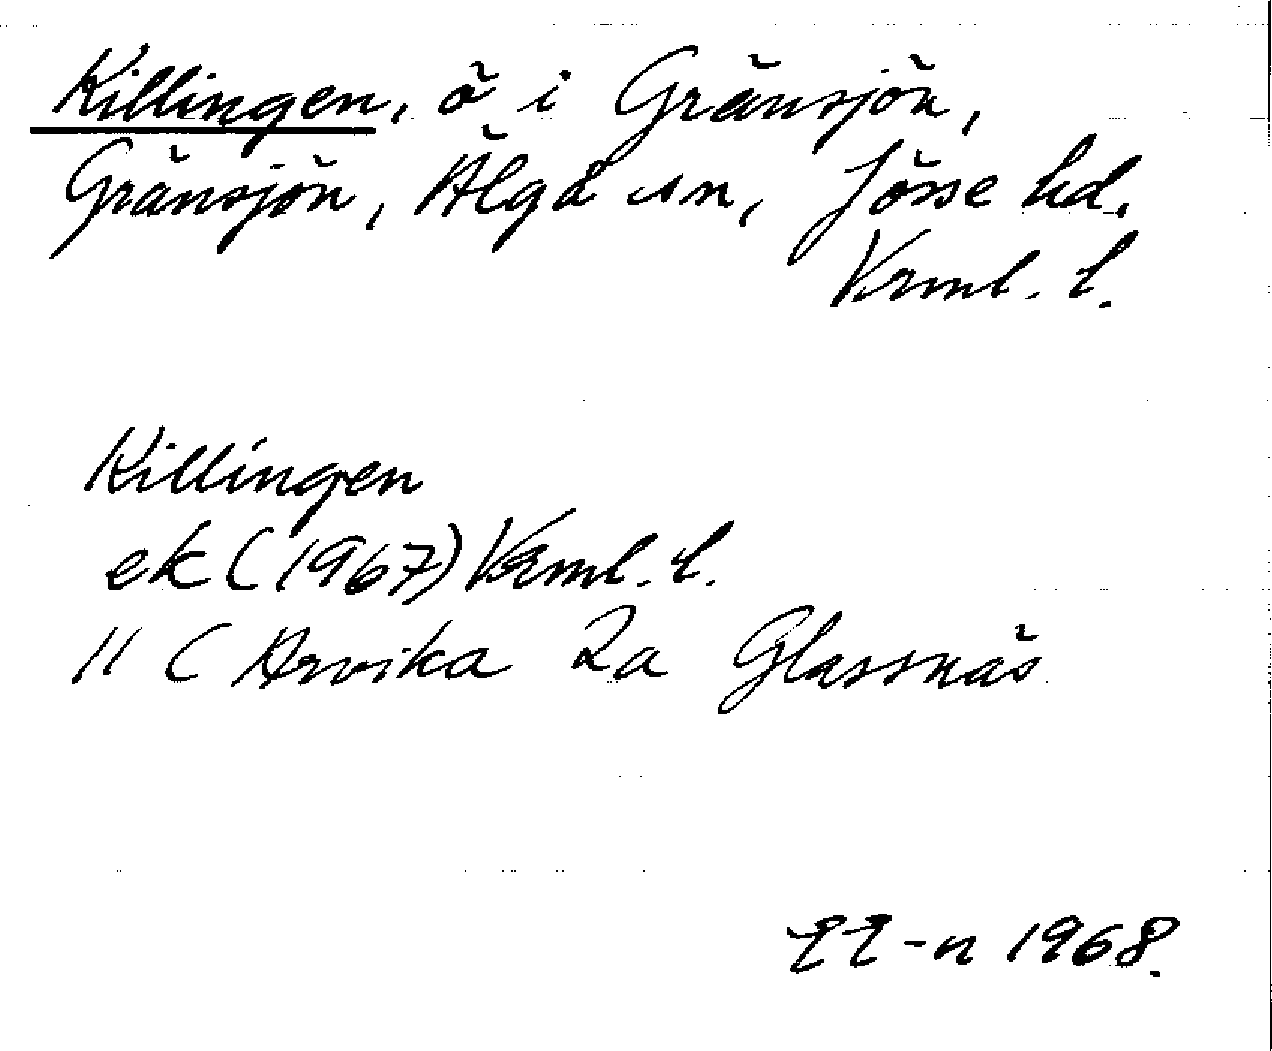 Killingen, ö i Gränsjön,
Gränsjön, Älgå sn, Jösse hd.
Vrml. l.
Killingen
ek (1967) Vrml. l.
11 C Arvika 2a Glassnäs
1968.